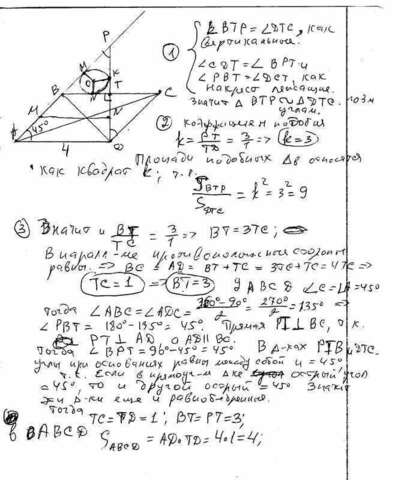 P
M
K
O
T
B
N
C
M
N
A
45°
4
D
① ∠BTP = ∠DTC, как
вертикальные.
∠CDT = ∠BPT и
∠PBT = ∠DCT, как
накрест лежащие.
Значит Δ BTP ∽ Δ DTC. по 3м
углам.
② коэффициент подобия
k = PT/TD = 3/1 => k = 3
Площади подобных Δв относятся
как квадрат k, т.е.
S BTP / S DTC = k² = 3² = 9
③ Значит и BT/TC = 3/1 => BT = 3TC;
В паралл-ме противоположные стороны
равны. => BC = AD = BT + TC = 3TC + TC = 4TC =>
TC = 1 => BT = 3 ABCD ∠C = ∠A = 45°
тогда ∠ABC = ∠ADC = 360°-90°/2 = 270°/2 = 135° =>
∠PBT = 180° - 135° = 45°. Прямая PT ⊥ BC, т.к.
PT ⊥ AD а AD ∥ BC.
тогда ∠BPT = 90° - 45° = 45° В Δ-ках PTB и DTC
углы при основаниях равны между собой и = 45°
т.к. Если в прямоуг-м Δке острый угол
= 45°, то и другой острый = 45° Значит
Δ-ки еще и равнобедренные.
Тогда
TC = TD = 1; BT = PT = 3;
в ABCD
S ABCD = AD·TD = 4·1 = 4;